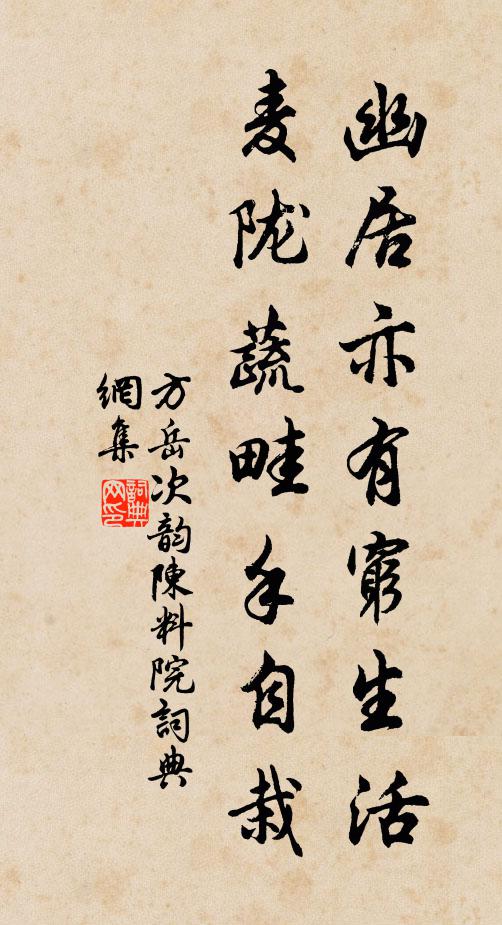 幽居亦有窮生活
麦陇蔬畦手自栽
方岳次韵陳料院詞典
網集
詞典
网印